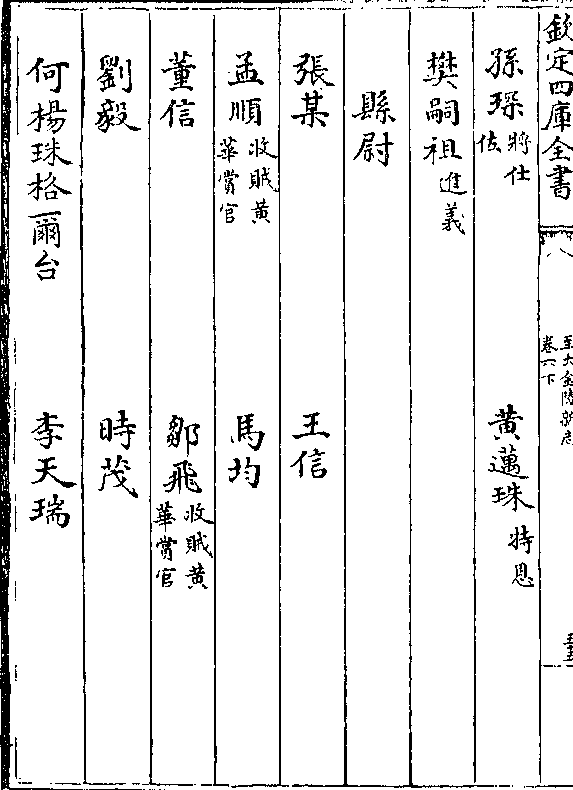 欽定四庫全書
至大金陵新志
卷六下
孫琛將仕佐 黄邁珠特恩
樊嗣祖進義
縣尉
張某 王信
孟順收賊黄華賞官 馬均
董信 鄒飛收賊黄華賞官
劉毅 時茂
何楊珠格爾台 李天瑞